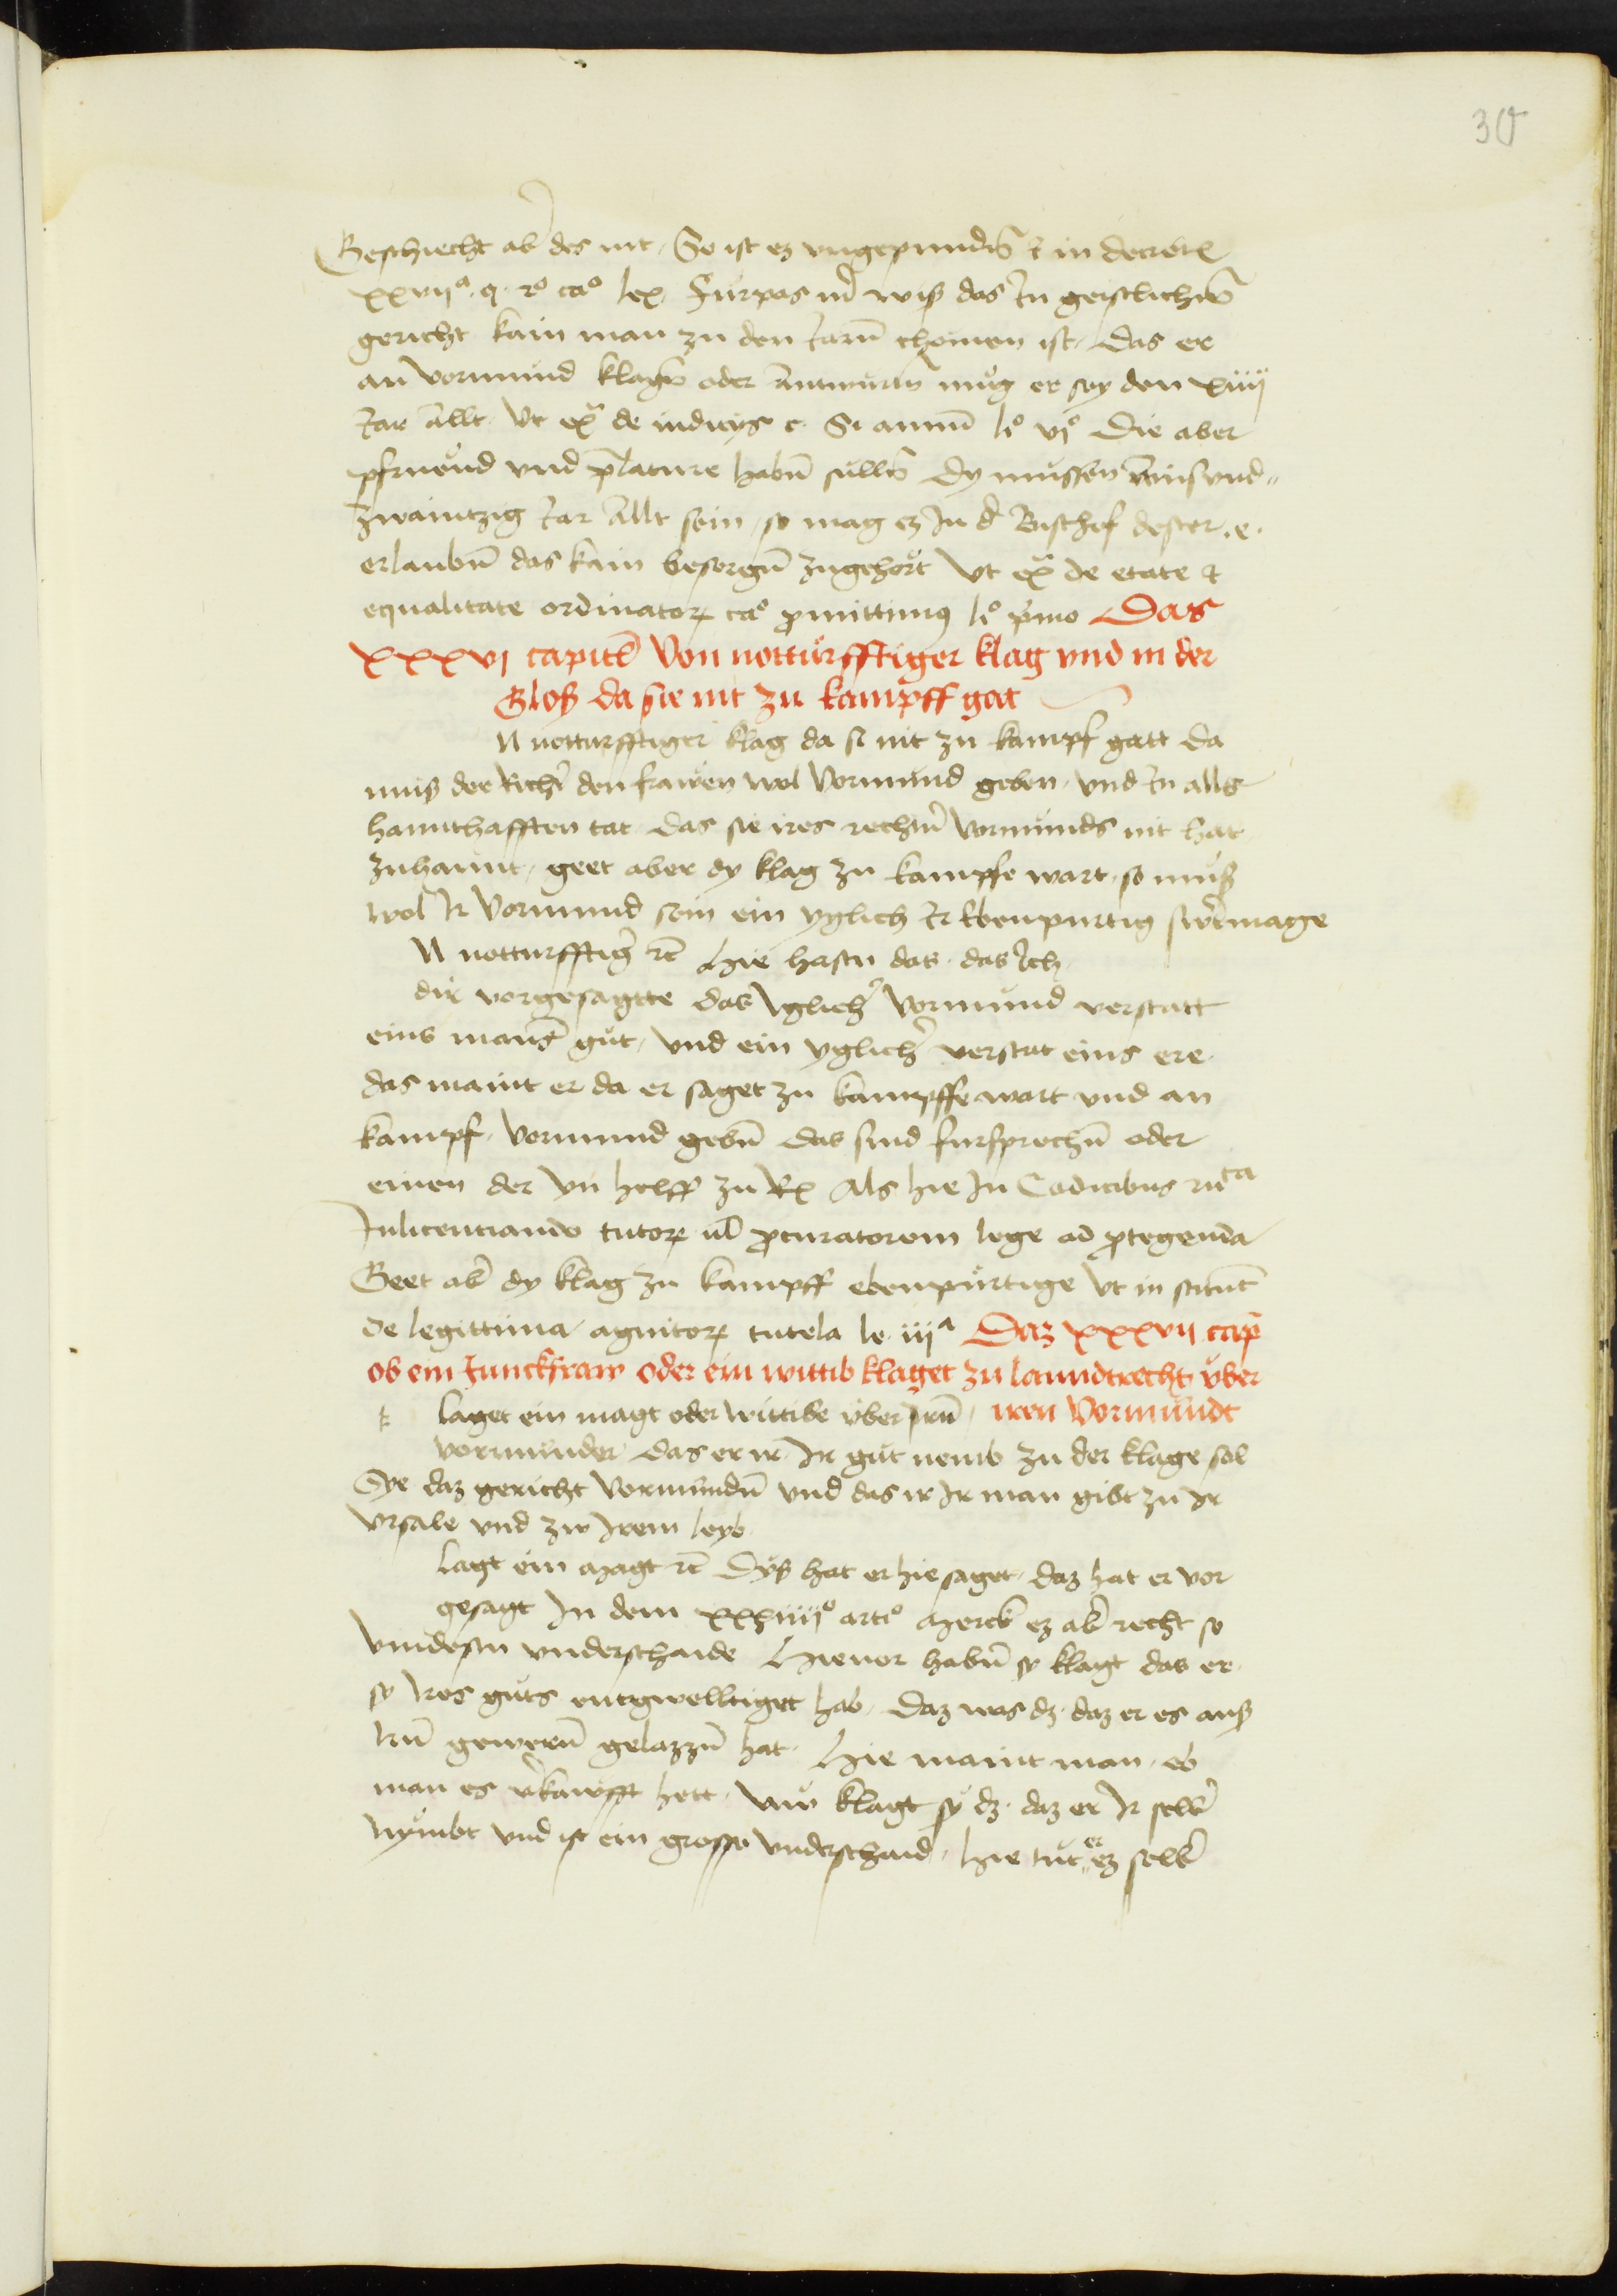 30
Geschiecht ab̄ des nit / So ist ez vngepundn̄ t in decretꝭ
xxvijᵃ q. 2º caº lex / Furpas m̄ wiß das In geistlichn̄
gericht kain man zu den Iarn̄ chomen ist / das er
an Vormund klagn̄ oder Antwurtn̄ mug er sey den xiiij
Iar Allt / Vt ex̄ de iudicijs c. Si annū liº vjº Die aber
pfruend vnd p̄lature habn̄ sullen Dy mussen ainsvnd=
zwaintzig Iar Allt sein / so mag ez In d̄ Bischof dester .e.
erlaubn̄ das kain besorgn̄ zugehört Vt ex̄ de etate t
equalitate ordinatoꝝ caº p̄mittimꝰ liº p̄mo Das
xxxvj capitꝉ Von notturfftiger klag vnd in der
Gloß da sie nit zu kampff get
N notturfftiger klag da si nit zu kampf gatt da
muß der Richt̄ den frawen wol Vormund geben / vnd In alls
hannthafften tat das sie ires rechtn̄ Vormunds nit hat
zuhannt / geet aber dy klag zu kampfe wart / so muß
wol Ir Vormund sein ein yglich Ir Ebenpurtig swertmage
N notturfftiḡ rc̄ Hie hastu das das Ich
dir vorgesagtte das yglich̄ Vormund verstatt
eins mans gut / vnd ein yglich̄ verstat eins ere
das maint er da er saget zu kampffe wart vnd an
kampf / Vormund gebn̄ das sind fursprechn̄ oder
einen der yn helff zu Rꝭ Als hie In Codicibus ru ca
In licentiando tutoꝝ ul̄ p̄curatorem lege ad p̄tegenda
Geet ab̄ dy klag zu kampff ebenpurtige Vt in stitut̄
de legittima agnitoꝝ tutela le iijᵃ Daz xxxvij cap̄
ob ein Junckfraw oder ein wittib klaget zu lanndtrecht vber
k laget ein magt oder wittibe vber Irn̄ / iren Vormundt
vormunder das er ir Ir gut nemb zu der klage sol
Sye daz gericht Vormundn̄ vnd das ir Ir man gibt zu Ir
vrsale vnd zw Irem leyb
lagt ein magt rc̄ Dyß hat er hie saget / daz hat er vor
gesagt In dem xxxiiijº artiº Merck ez ab̄ recht so
vindestu vnderschaide Hieuor habn̄ sy klagt das er
sy Ires guts entgwelltiget hab / daz was dz. daz er es auß
Irn̄ gewern̄ gelazzn̄ hat / Hie maint man / ob
man es v̄kaufft hett / Nw klagt sy dz. daz er Ir selb̄
Nymbt vnd ist ein grosse vnderschaid / hie tut er ez selb̄